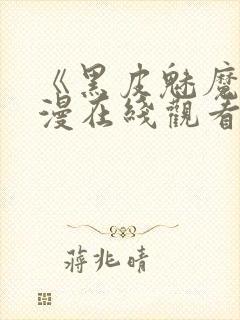 《黑皮魅魔
漫在綫觀看
蔣兆晴